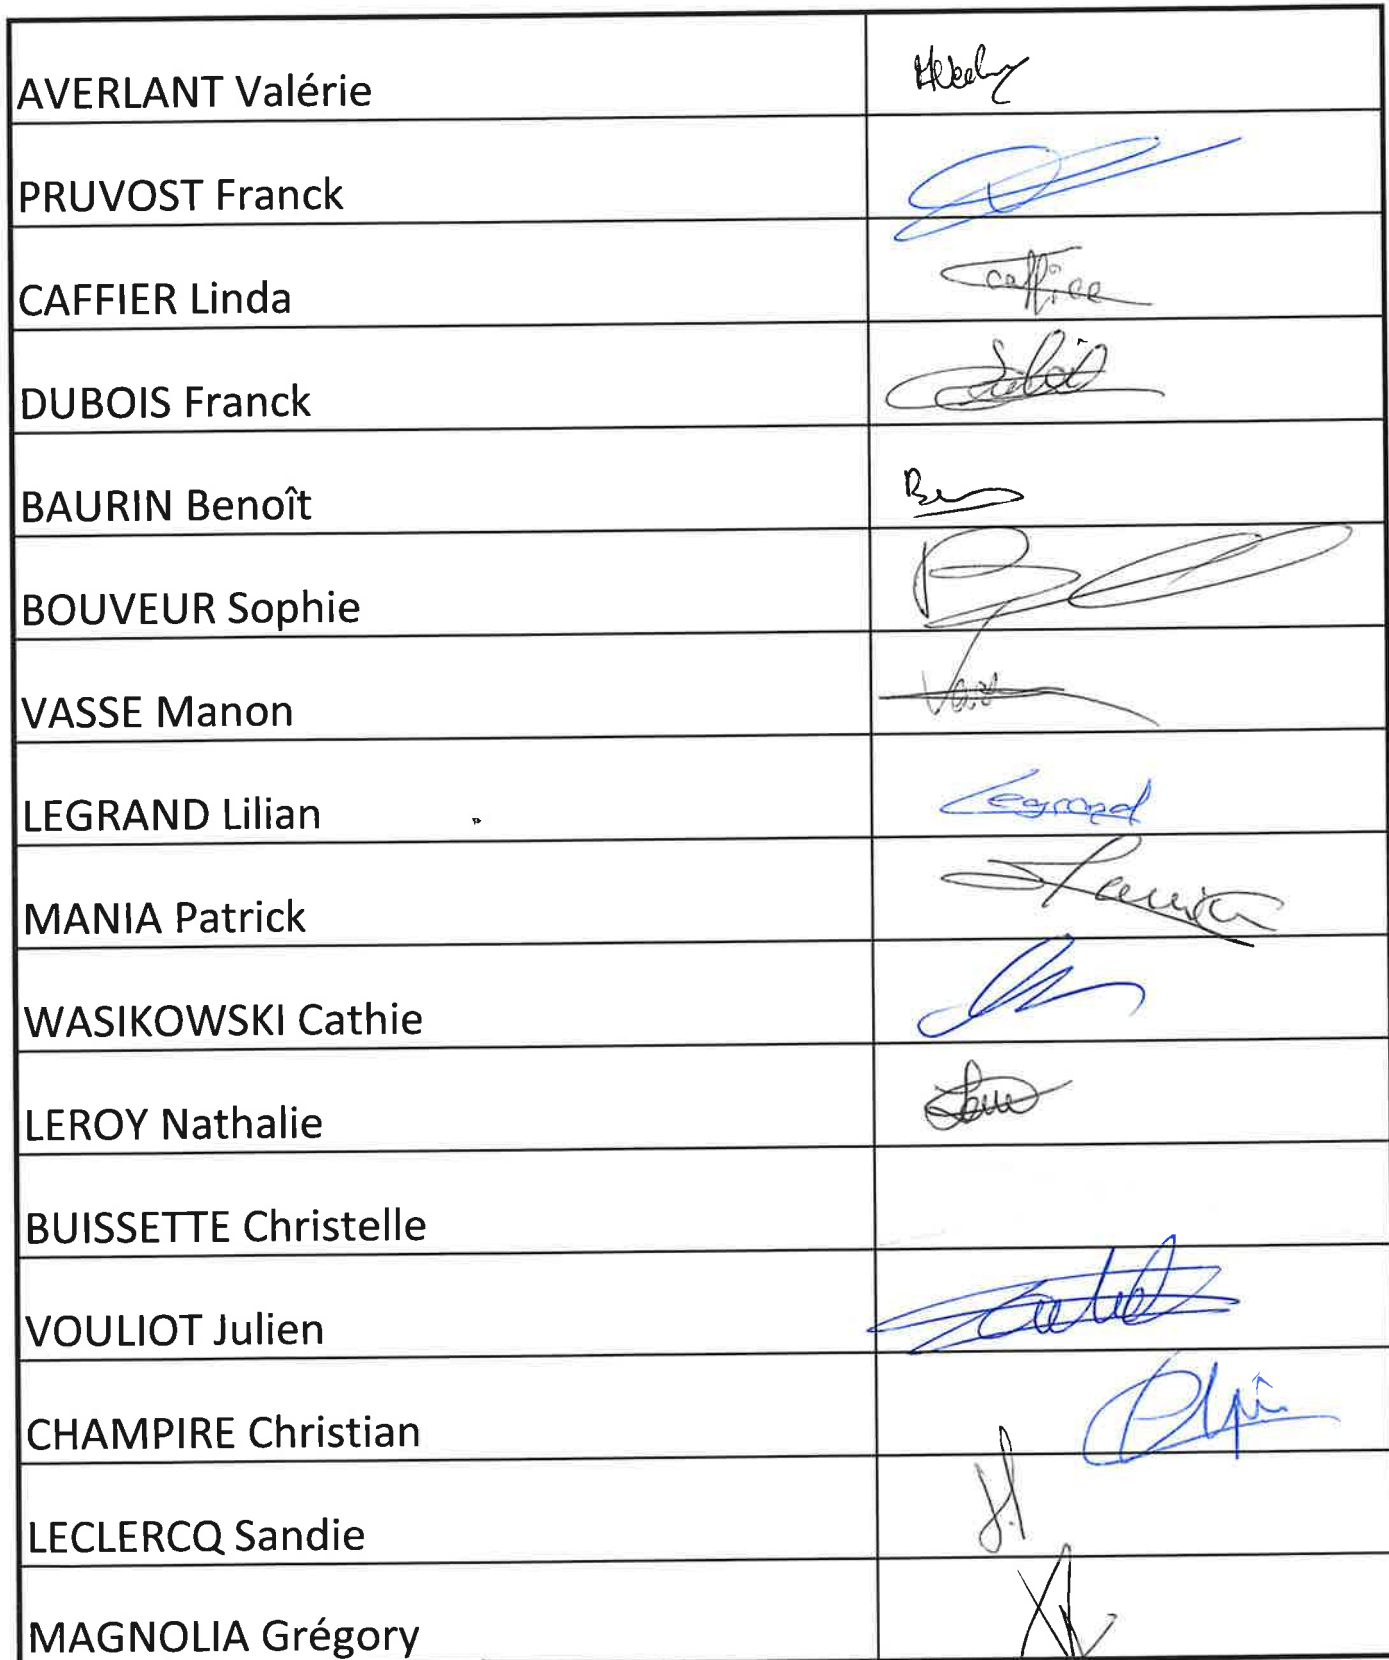 AVERLANT Valérie
PRUVOST Franck
CAFFIER Linda caffier
DUBOIS Franck
BAURIN Benoît
BOUVEUR Sophie
VASSE Manon
LEGRAND Lilian Legrand
MANIA Patrick
WASIKOWSKI Cathie
LEROY Nathalie
BUISSETTE Christelle
VOULIOT Julien
CHAMPIRE Christian
LECLERCQ Sandie
MAGNOLIA Grégory